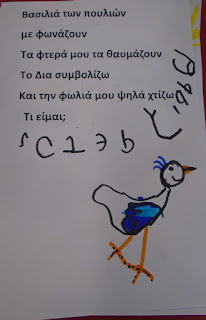 Βασιλιά των πουλιών
με φωνάζουν
Τα φτερά μου τα θαυμάζουν
Το Δια συμβολίζω
Και την φωλιά μου ψηλά χτίζω
Τι είμαι;